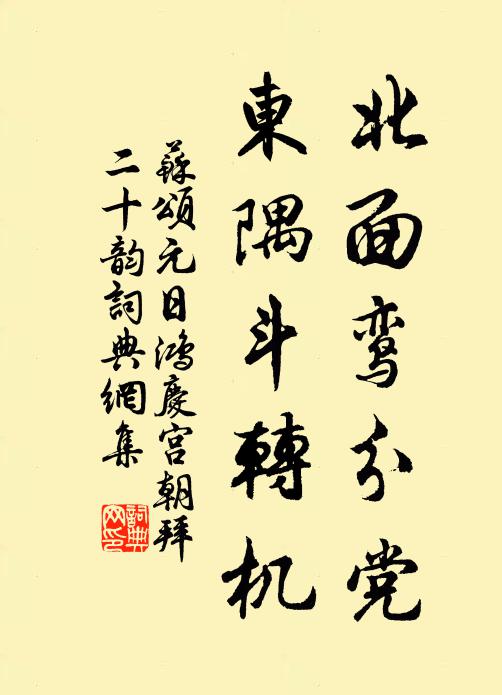 北面鸾分党
東隅斗轉机
蘇頌元日鴻慶宫朝拜
二十韵詞典網集
詞典
网印